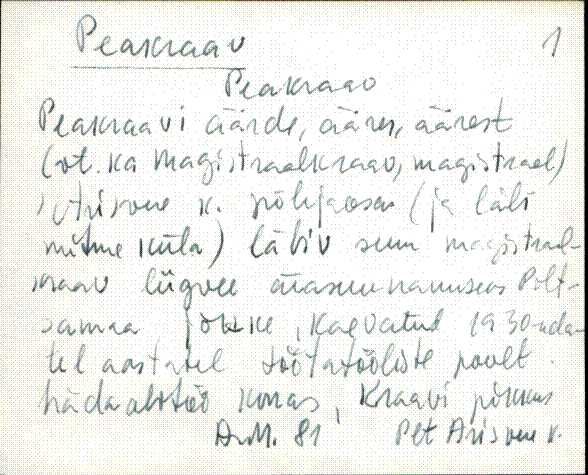 Peakraav 1
Peakraav
Peakraavi äärde, ääres, äärest
(vt. ka magistraalkraav, magistraal)
, Arisvere k. põhjaosas (ja läbi
mitme küla) läbiv suur magistraal-
kraav liigvee ärasuunamiseks Põlt-
samaa jõkke, kaevatud 1930-nda-
tel aastatel töötatööliste poolt
hädaabitöö korras, Kraavi pikkus
A.M. 81 Plt Arisvere k.